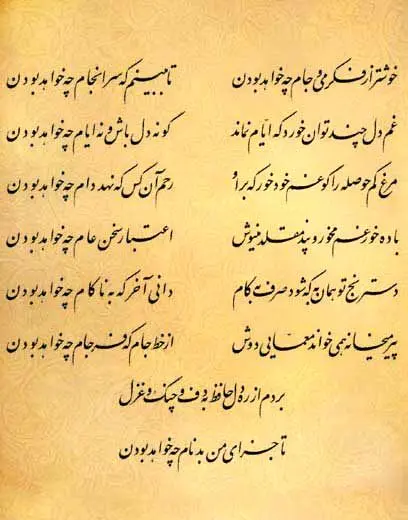 خوشتر از فکر می و جام چه خواهد بودن تا ببینم که سرانجام چه خواهد بودن
غم دل چند توان خورد که ایّام نماند گو نه دل باش و نه ایام چه خواهد بودن
مرغ کم حوصله را گو غم خود خور که بر او رحم آن کس که نهد دام چه خواهد بودن
باده خور غم مخور و پند مقلد منیوش اعتبار سخن عام چه خواهد بودن
دسترنج تو همان به که شود صرف به کام دانی آخر که به ناکام چه خواهد بودن
پیر میخانه همی خواند معمایی دوش از خط جام که فرجام چه خواهد بودن
بردم از ره دل حافظ به دف و چنگ و غزل
تا جزای من بدنام چه خواهد بودن